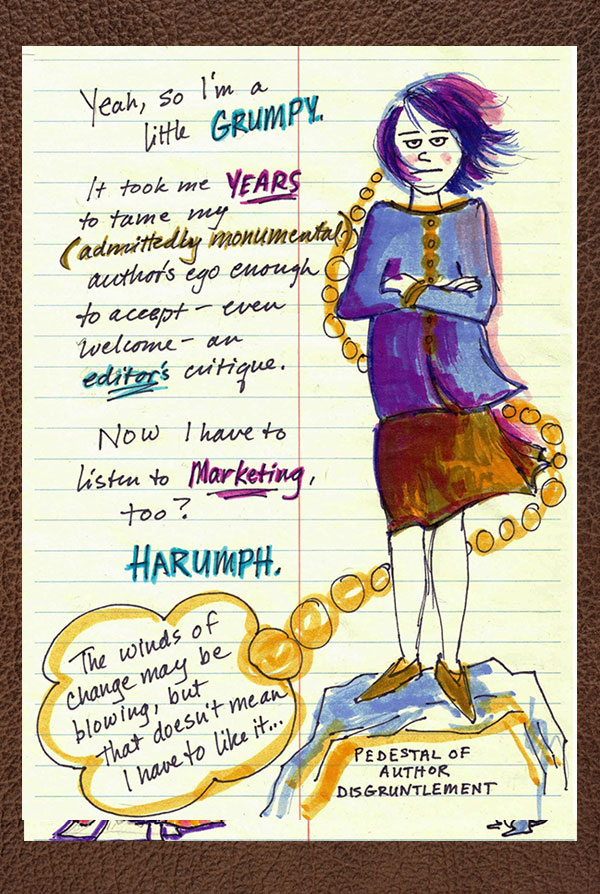 Yeah, so I'm a
little GRUMPY.
It took me YEARS
to tame my
(admittedly monumental)
author's ego enough
to accept – even
welcome – an
editor's critique.
Now I have to
listen to Marketing,
too?
HARUMPH.
The winds of
change may be
blowing, but
that doesn't mean
I have to like it...
PEDESTAL OF
AUTHOR
DISGRUNTLEMENT